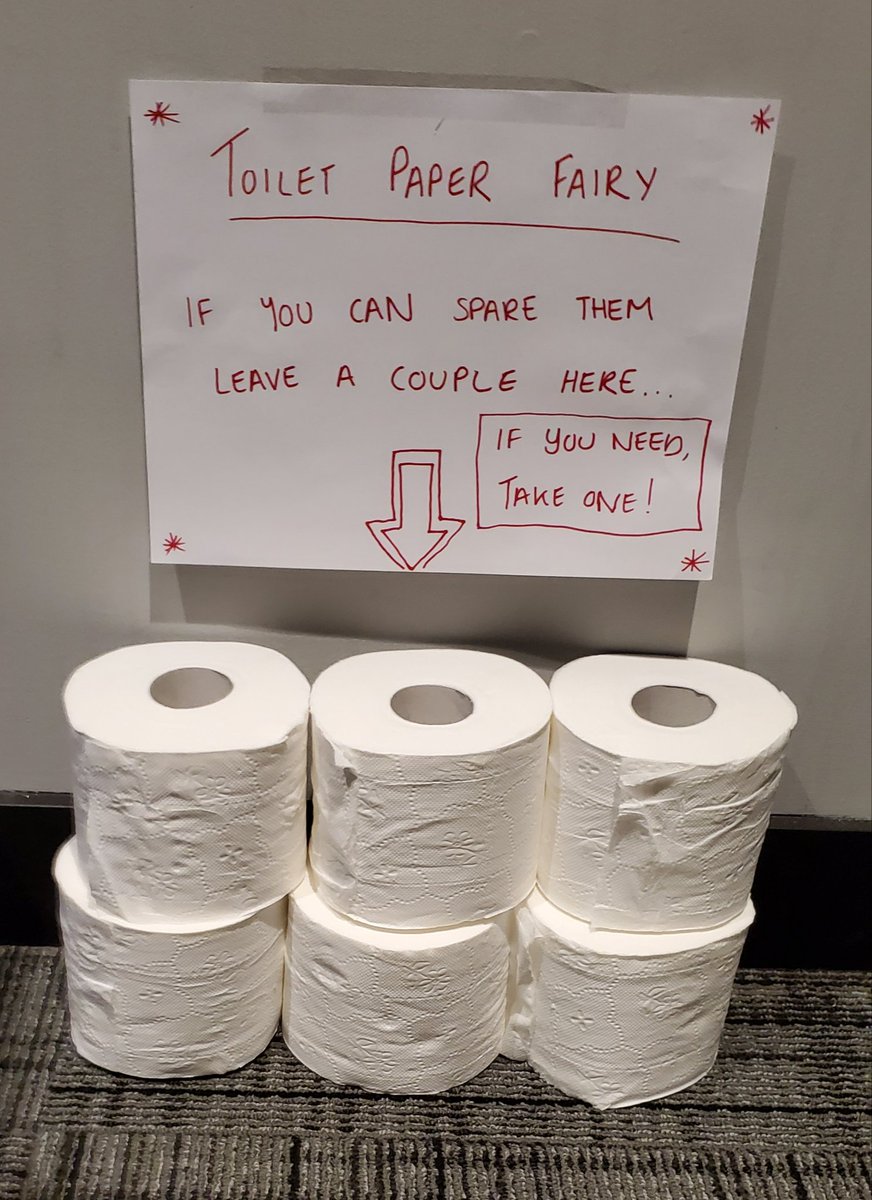 TOILET PAPER FAIRY
IF YOU CAN SPARE THEM
LEAVE A COUPLE HERE...
IF YOU NEED,
TAKE ONE!